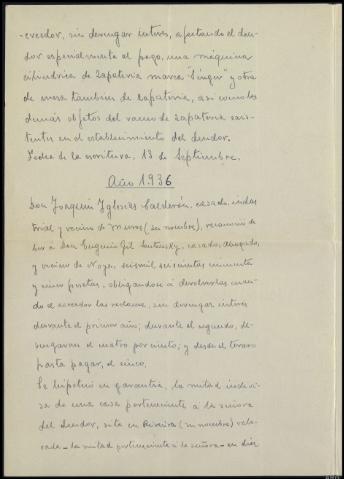 creedor, sin devengar interés, afectando el deu-
dor especialmente al pago, una máquina
cilíndrica de zapatería marca "Singer" y otra
de mesa también de zapatería, así como los
demás objetos del ramo de zapatería exis-
tentes en el establecimiento del deudor.
Fecha de la escritura, 13 de Septiembre.
Año 1.936
Don Joaquín Yglesias Calderón, casado, indus
trial y vecino de Muros (su nombre), reconoció de
ber a Don Eugenio Gil, casado, abogado,
y vecino de Noya, seismil seiscientas cincuenta
y cinco pesetas, obligándose á devolverlas cuan-
do el acreedor las reclame, sin devengar interés
durante el primer año; durante el segundo, de-
vengarán el cuatro por ciento; y desde el tercero
hasta pagar, el cinco.
Se hipotecó en garantía, la mitad indivi-
sa de una casa perteneciente á la señora
del deudor, sita en Riveira (su nombre) valo-
rada - la mitad perteneciente á la señora - en diez